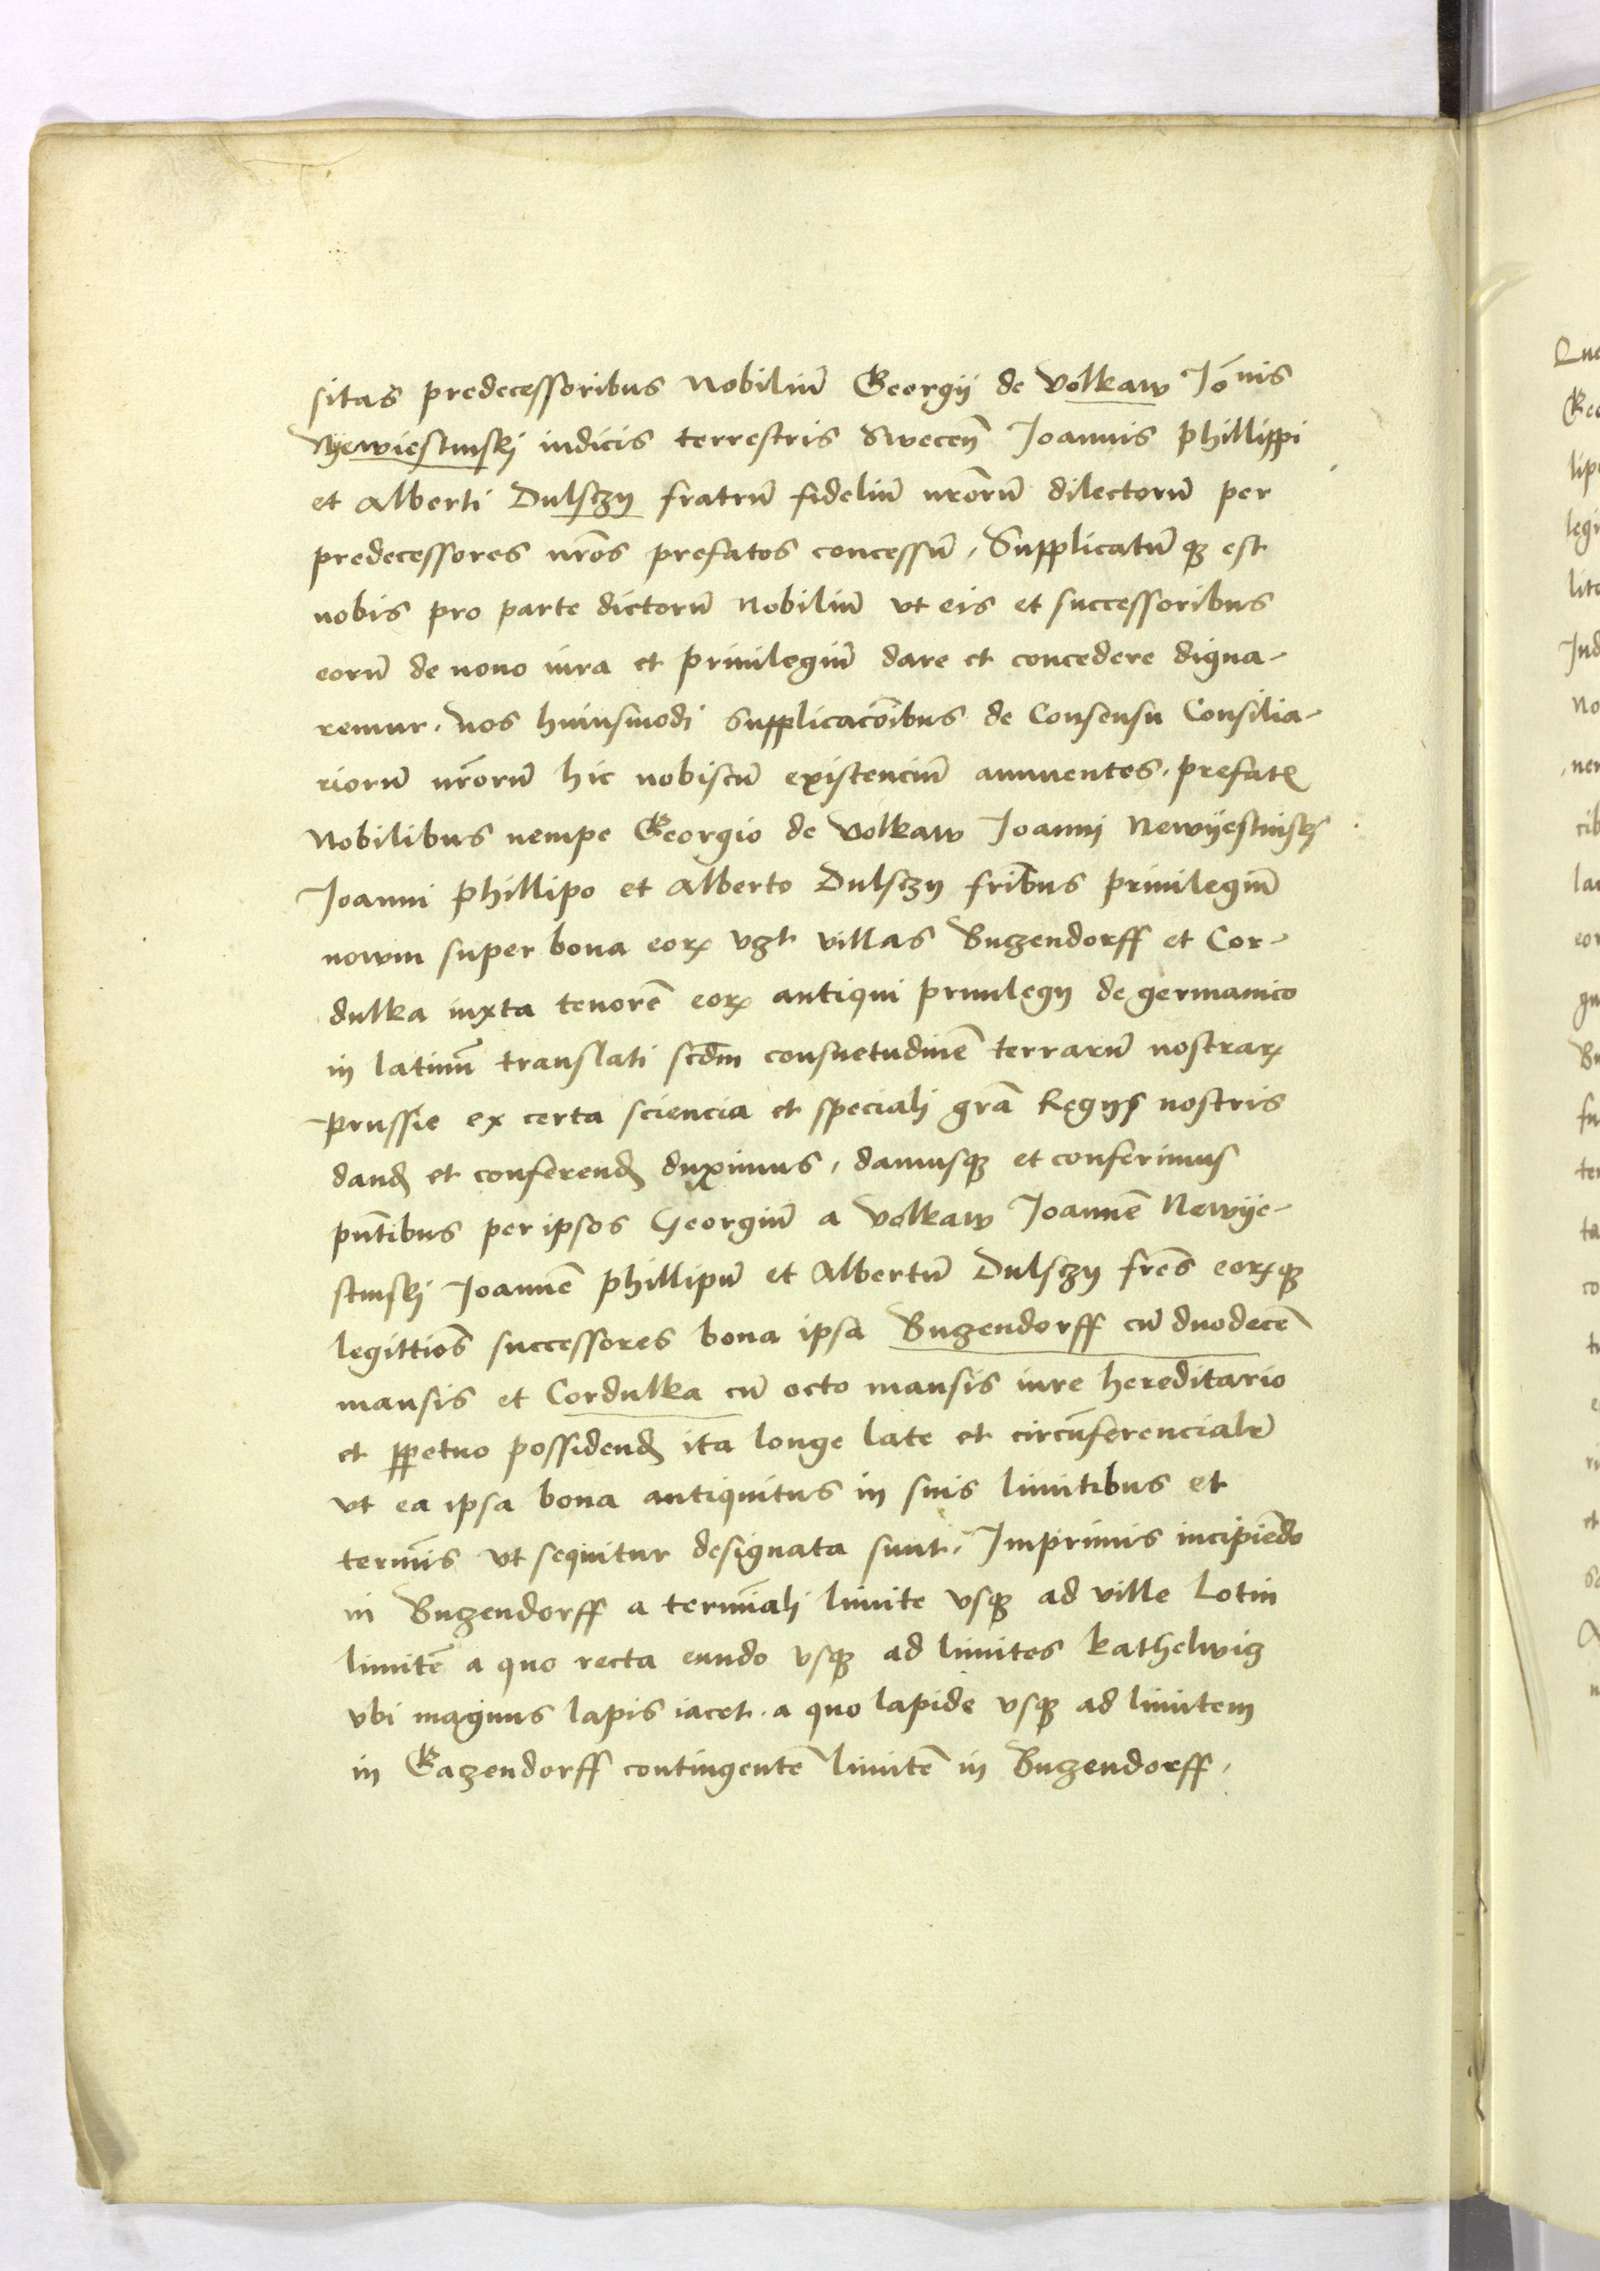 sitas predecessoribus Nobiliū Georgij de Volkaw Jōnis
Nÿewiesczinskj iudicis terrestris Swecen̄ Joannis Phillippi
et Alberti Dulsczÿ fratrū fideliū nrōrū dilectorū per
predecessores nrōs prefatos concessū, Supplicatū qȝ est
nobis pro parte dictorū Nobiliū vt eis et successoribus
eorū de nouo iura et priuilegiū dare et concedere digna-
remur. Nos huiusmodi Supplicacōibus de Consensu Consilia-
riorū nrōrū hic nobiscū existenciū annuentes. prefatꝭ
Nobilibus nempe Georgio de Volkaw Joannj
Joanni Phillipo et Alberto Dulsczÿ frībus priuilegiū
nowm super bona eorꝝ vzt villas Buczendorff et Cor-
dulka iuxta tenorē eorꝝ antiqui priuilegij de germanico
in latinū translati scdm̄ consuetudinē terrarū nostrarꝝ
Prussie ex certa sciencia et speciali grā Regijs nostris
dand et conferend duximus, damusqȝ et conferimus
pn̄tibus per ipsos Georgiū a Volkaw Joannē Newÿe-
scinskj Joannē Phillipū et Albertū Dulsczÿ frēs eorꝝqȝ
legittīos successores bona ipsa Buczendorff cū duodecē
mansis et Cordulka cū octo mansis iure hereditario
et ꝑpetuo possidend ita longe late et circūferencialr̄
vt ea ipsa bona antiquitus in suis limitibus et
termīs vt sequitur designata sunt. Imprimis incipiēdo
in Buczendorff a termīali limite vsqȝ ad ville Lotin
limitē a quo recta eundo vsqȝ ad limites Kathelwig
vbi magnus lapis iacet. a quo lapide vsqȝ ad limitem
in Gaczendorff contingentē limitē in Buczendorff,